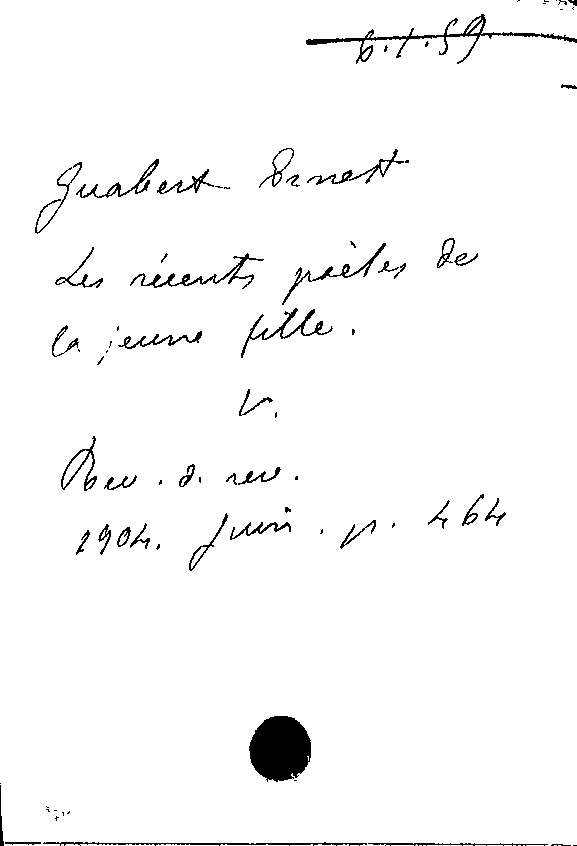 6.1.59.
Guabert Ernest
Les récents poètes de
la jeune fille.
V.
Rev. d. rev.
1904. Juin. p. 464